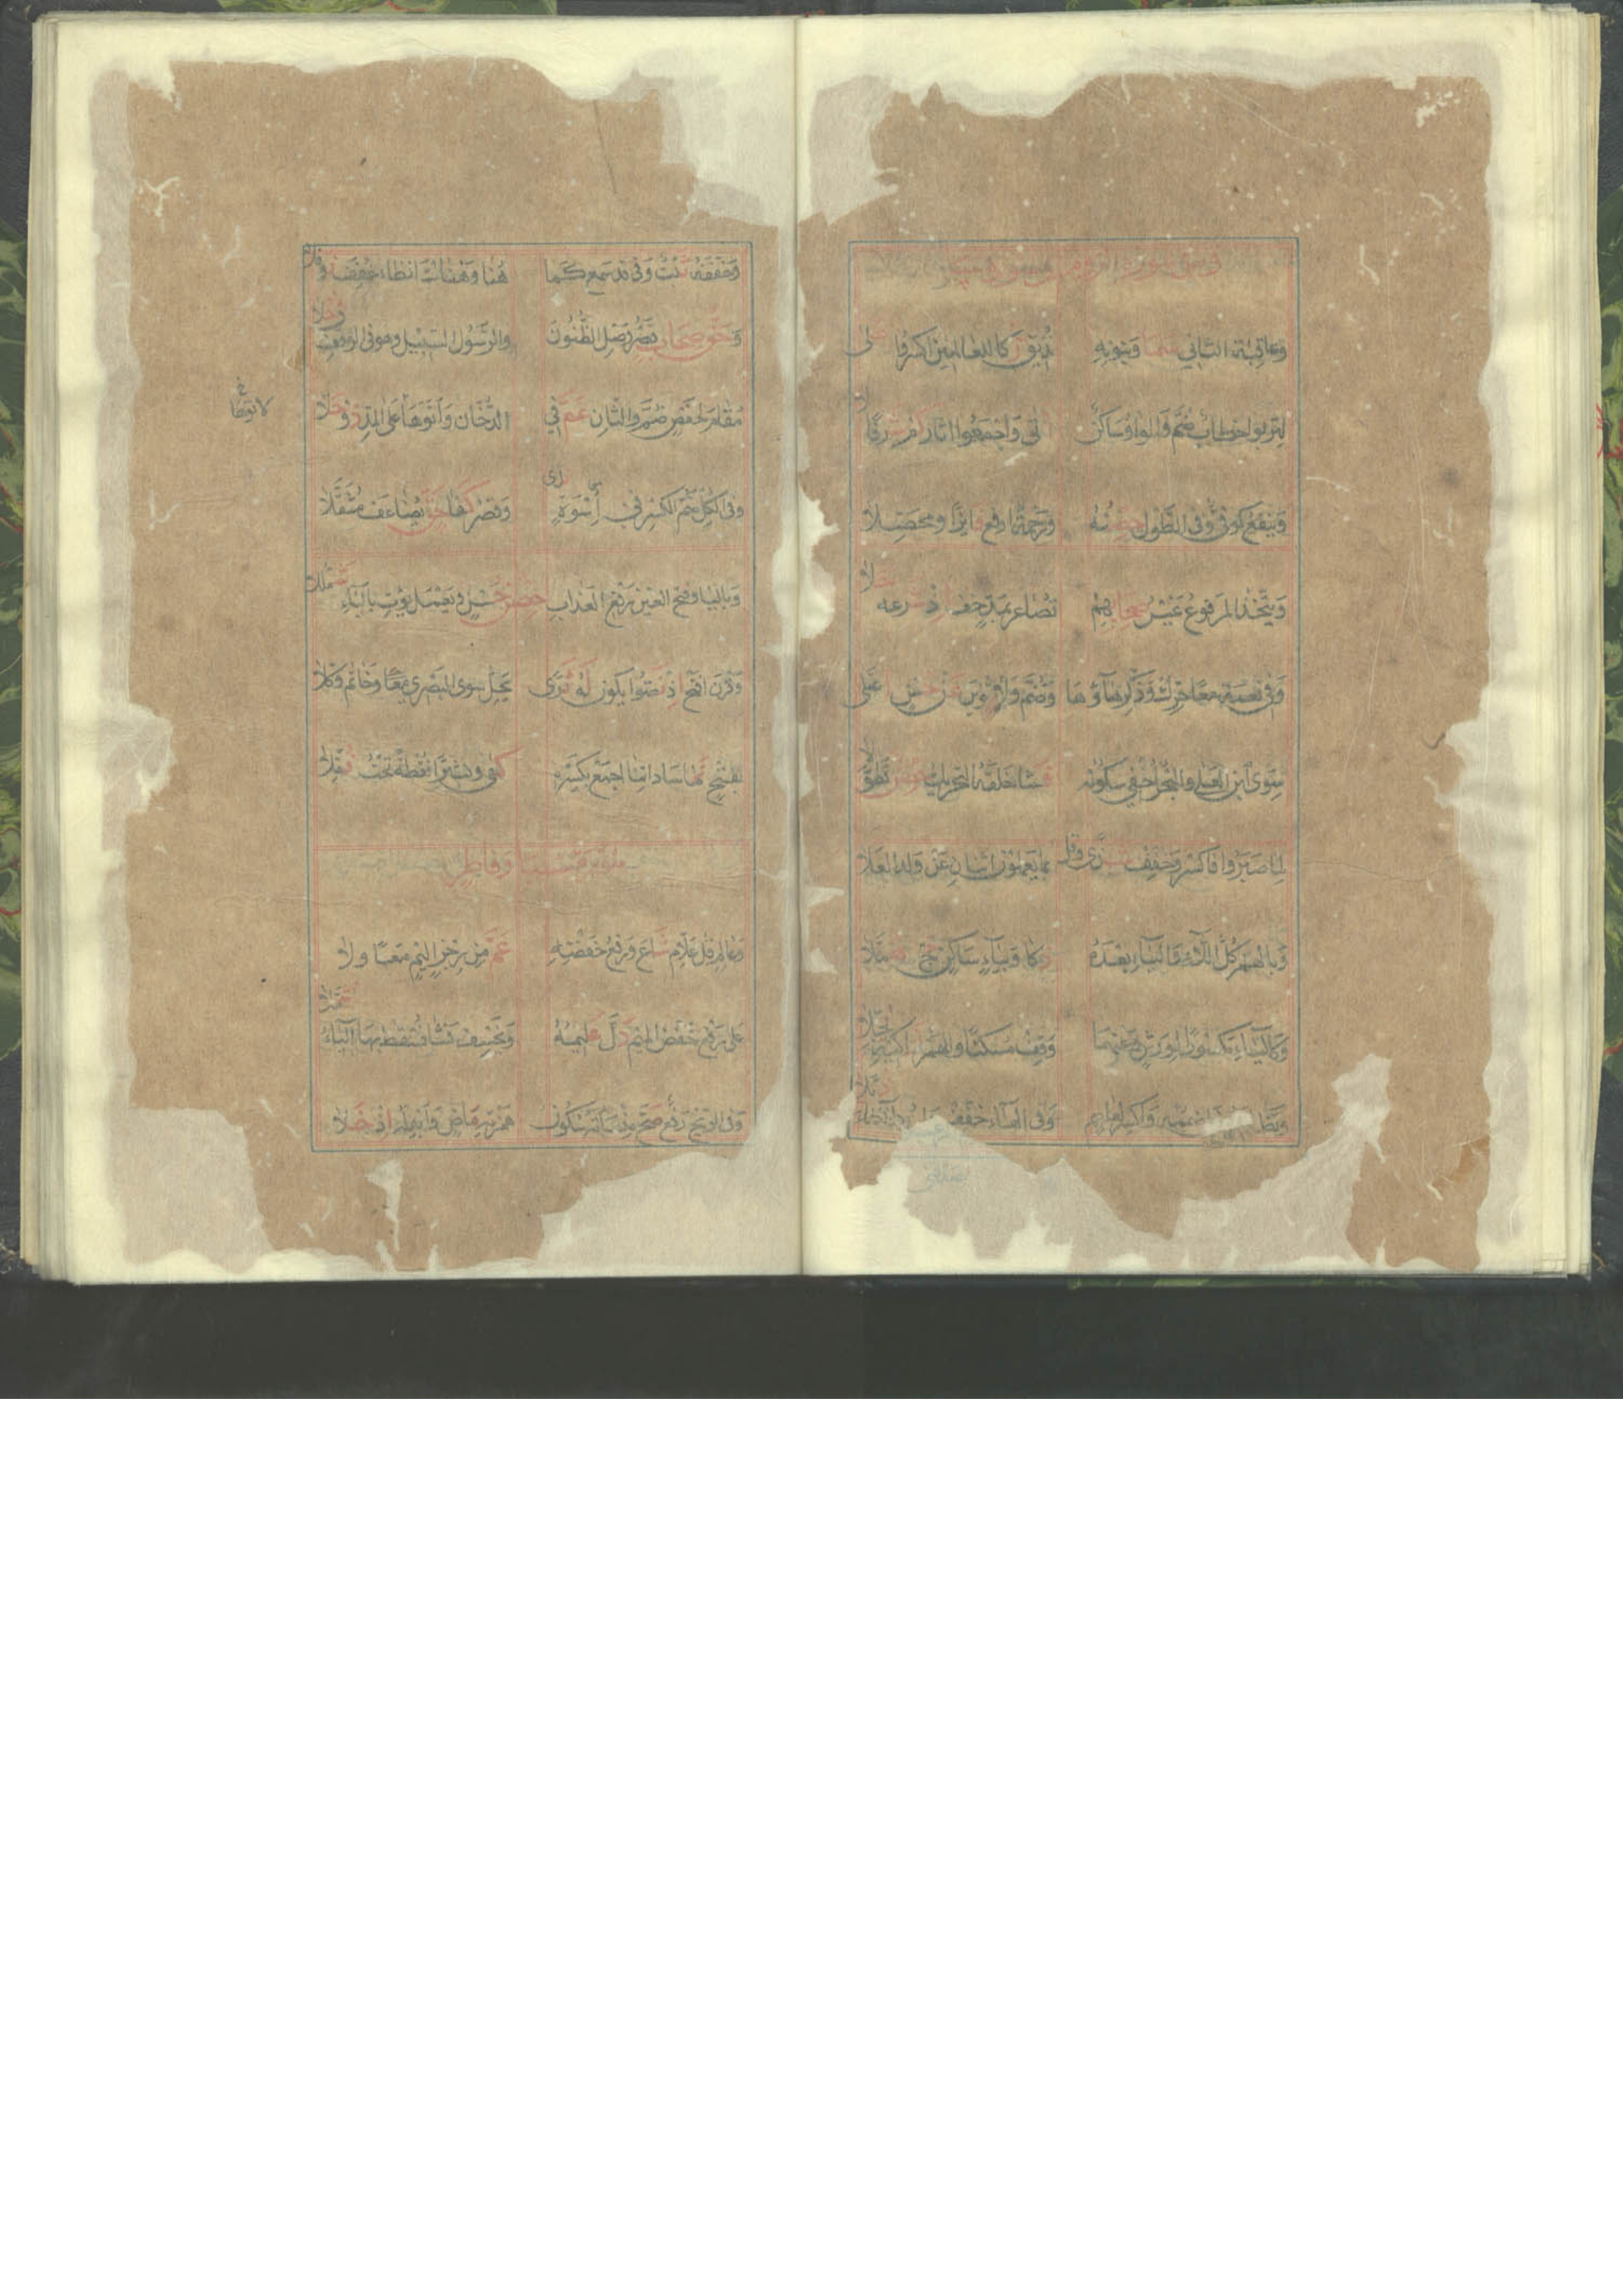 ومن سورة الروم الى سورة سبا
وعاقبة الثاني سما وبنونه نذيق زكا للعالمين اكسروا على
لتربوا خطاب ضم والواو ساكن اتى واجمعوا اثار كم شرفا علا
وينفع كوفى وفى الطول حصنه ورحمة ارفع فايزا ومحصلا
ويتخذ المرفوع غير صحابهم تصاعر بمد خف اذ شرعه حلا
وفى نعمة حرك وذكر هاؤها وضم ولا تنوين عن حسن اعتلى
سوى ابن العلا والبحر اخفي سكونه فشا خلقه التحريك حصن تطولا
لما صبروا فاكسر وخفف شذى وقل بما يعملون اثنان عن ولد العلا
وبالهمز كل اللاء والياء بعده ذكا وبياء ساكن حج هملا
وكالياء مكسورا لورش وعنهما وقف مسكنا والهمز زاكيه بجلا
وتظاهرون اضممه واكسر لعاصم وفى الهاء خفف
وخففه ثبت وفى قد سمع كما هنا وهناك الظاء خفف نوفلا
وحق صحاب قصر وصل الظنون والرسول السبيل وهو فى الوقف فى حلا
مقام لحفص ضم والثان عم فى الدخان واتوها على المد ذو حلا
لا توها
خ
وفى الكل ضم الكسر فى اسوة ندى وقصر كفا حق يضاعف مثقلا
وباليا وفتح العين رفع العذاب حصن حسن وتعمل نؤت بالياء شمللا
وقرن افتح اذ نصوا يكون له ثوى يحل سوى البصرى وخاتم وكلا
بفتح نما ساداتنا اجمع بكسرة كفى وكثيرا نقطة تحت نفلا
سورة سبا وفاطر
وعالم قل علام شاع ورفع خفضه عم من رجز اليم معا ولا
على رفع خفض الميم دل عليمه ونخسف نشا نسقط بها الياء شمللا
وفى الريح رفع صح منساته سكون همزته ماض وابدله اذ حلا